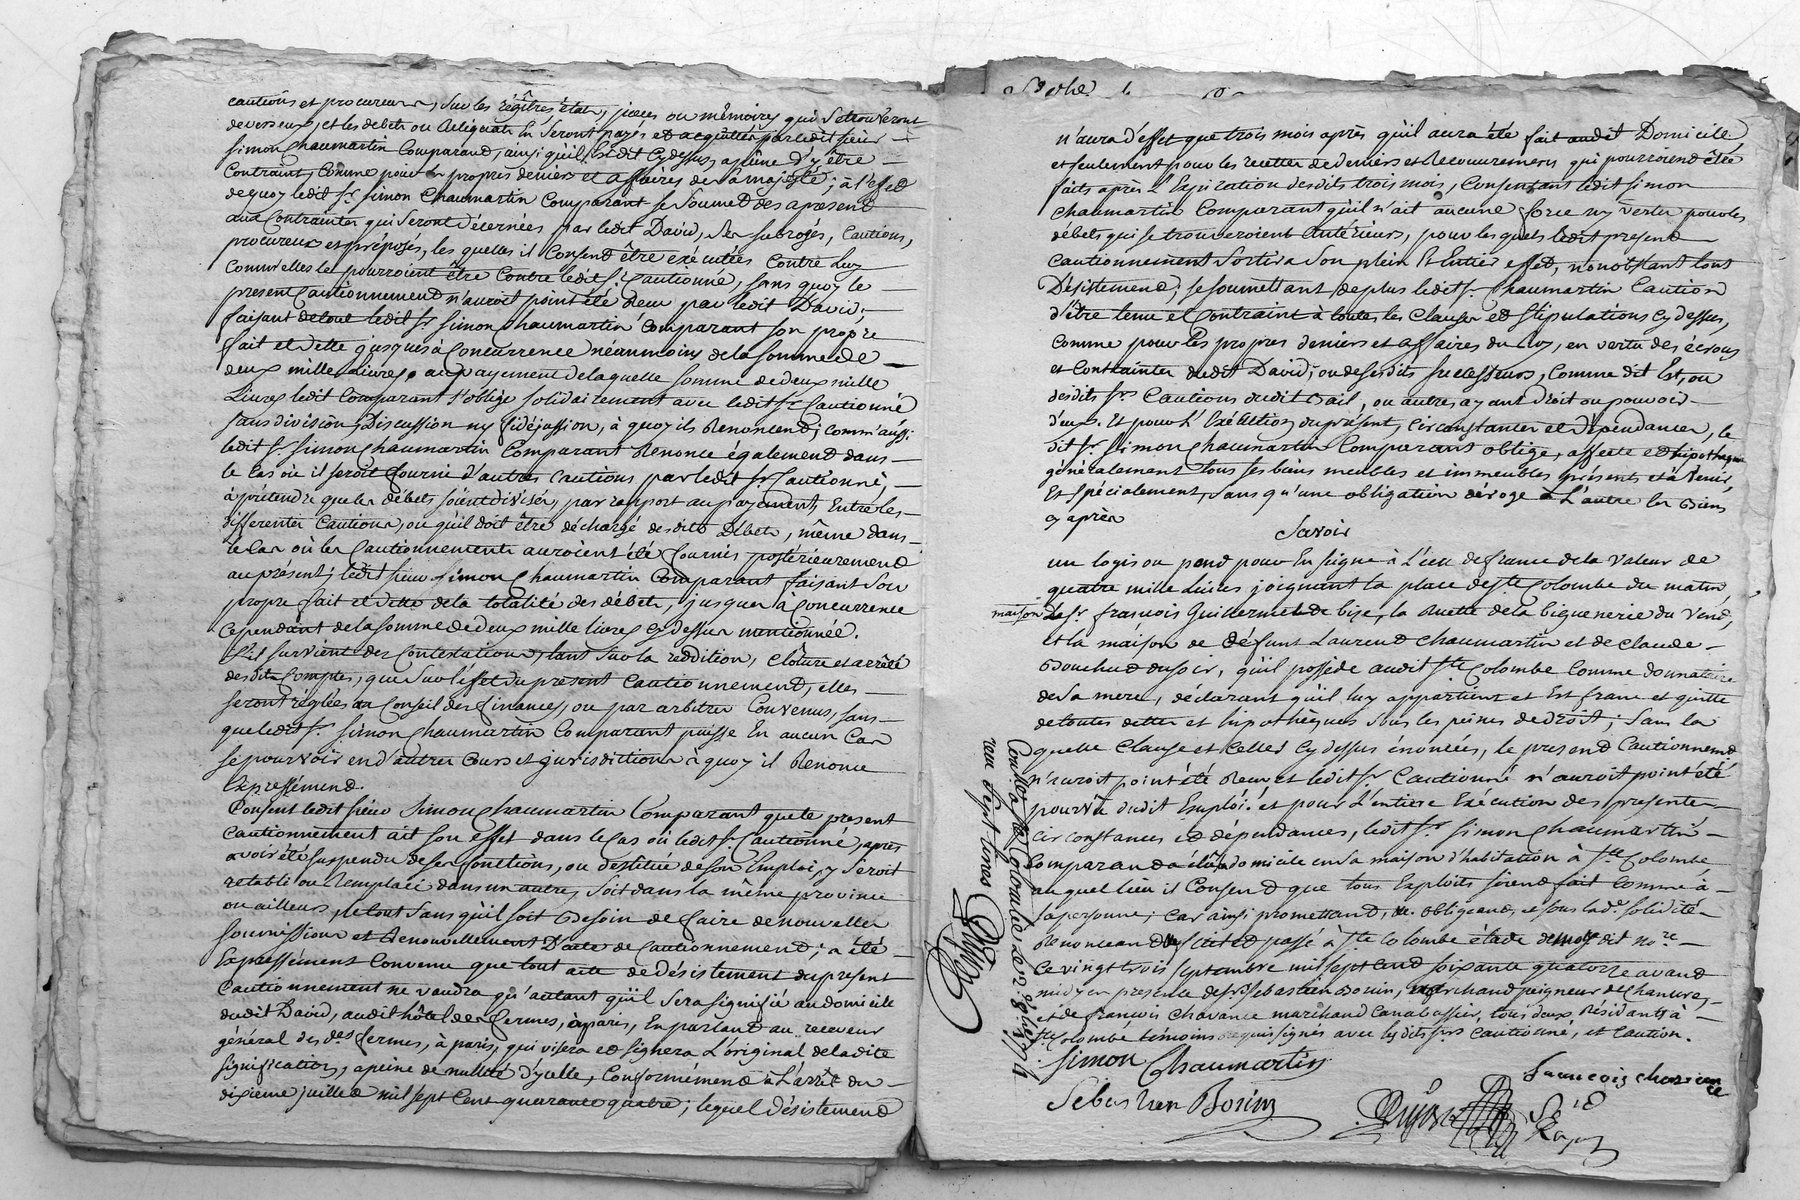 cautions et procureurs, sur les régîtres états, pieces ou mémoires qui se trouveront
devers eux, et les debets ou Reliquats en seront payés et acquittés par ledit sieur
simon Chaumartin Comparant, ainsi qu'il est dit Cy dessus, a peine d'y être
Contraint, Comme pour les propres deniers et affaires de sa majesté; à l'effet
de quoy ledit Sr. simon Chaumartin Comparant se soumet des apresent
aux Contraintes qui seront décernées par ledit David, ses subrogés, Cautions,
procureurs et préposés, les quelles il Consent être executées Contre luy
Comme elles le pourroient être Contre ledit Sr. Cautionné, sans quoy le
present Cautionnement n'auroit point été receu par ledit David;
faisant de tout ledit Sr Simon Chaumartin Comparant son propre
fait et dette jusques à Concurrence néanmoins de la somme de
deux mille Livres, au payement de laquelle somme de deux mille
Livres ledit Comparant s'oblige solidairement avec ledit Sr. Cautionné
sans division, Discussion ny fidéjussion, à quoy ils Renoncent; comm'aussi
ledit Sr. Simon Chaumartin Comparant Renonce également dans
le Cas où il seroit fourni d'autres Cautions par ledit Sr Cautionné,
à prétendre que les débets soient divisés, par rapport au payement, Entre les
differentes Cautions, ou qu'il doit être déchargé desdits Débets, même dans
le Cas où les Cautionnements auroient été fournis postérieurement
au présent; ledit sieur simon Chaumartin Comparant faisant son
propre fait et dette de la totalité des débets, jusques à Concurrence
Cependant de la somme de deux mille livres Cy dessus mentionnée.
S'il survient des Contestations, tant sur la reddition, Clôture et arrêté
desdits Comptes, que sur l'effet du présent Cautionnement, elles
seront réglées au Conseil des finances, ou par arbitres Convenus, sans
que ledit Sr. Simon Chaumartin Comparant puisse En aucun Cas
se pourvoir en d'autres Cours et jurisdictions à quoy il Renonce
Expressément.
Consent ledit sieur Simon Chaumartin Comparant que le present
Cautionnement ait son effet dans le Cas où ledit Sr. Cautionné, après
avoir été suspendu de ses fonctions, ou destitué de son Emploi, y seroit
retabli ou Remplacé dans un autre, soit dans la même province
ou ailleurs, le tout sans qu'il soit Besoin de faire de nouvelles
soumissions et Renouvellement D'acte de Cautionnement; a été
Expressément Convenu que tout acte de désistement du present
Cautionnement ne vaudra qu'autant qu'il sera signifié au domicile
dudit David, audit hôtel des fermes, à paris, En parlant au receveur
général desdes fermes, à paris, qui visera et signera L'original de ladite
signification, a peine de nullité d'ycelle, Conformément à L'arrêt du
dixieme juillet mil sept Cent quarante quatre; lequel désistement
n'aura d'effet que trois mois après qu'il aura été fait audit Domicile,
et seulement pour les recettes de deniers et Recouvrements qui pourroient être
faits après l'Expiration desdits trois mois, Consentant ledit simon
chaumartin Comparant qu'il n'ait aucune force ny vertu pour les
débets qui se trouveroient antérieurs, pour lesquels ledit present
Cautionnement sortira son plein et Entier effet, nonobstant tout
Désistement; se soumettant de plus ledit Sr. Chaumartin Caution
d'être tenu et Contraint à toutes les Clauses et stipulations Cy dessus,
Comme pour les propres deniers et affaires du Roy, en vertu des écrous
et Contraintes dudit David; ou de sesdits successeurs, Comme dit Est, ou
desdits Srs Cautions dudit Bail, ou autres ayant Droit ou pouvoir
d'eux. Et pour l'Exécution du présent, Circonstances et Dépendances, le
dit Sr. Simon Chaumartin Comparant oblige, affecte et hipothèque
généralement tous ses biens meubles et immeubles présents et à venir,
Et spécialement, sans qu'une obligation déroge à L'autre les Biens
cy après
Savoir
un logis ou pend pour Enseigne à L'écu de france de la valeur de
quatre mille Livres joignant la place de Ste Colombe du matin
maison de Sr. françois Guillermet de bize, la Ruette de la biguenerie du Vent,
et la maison de défunt Laurend Chaumartin et de Claude
Bouchud du soir, qu'il possède audit Ste Colombe Comme donnataire
de sa mere, déclarant qu'il luy appartient et Est franc et quitte
de toutes dettes et hipothèques sous les peines de droit; sans la
quelle Clause et Celles Cy dessus énoncées, le present Cautionnement
n'auroit point été Receu, et ledit Sr Cautionné n'auroit point été
pourvû dudit Emploi. et pour L'entiere Exécution des présentes
Circonstances et dépendances, ledit Sr. Simon Chaumartin
Comparand a élû domicile en sa maison d'habitation à Ste Colombe
auquel lieu il Consend que tous Exploits soient fait Comme à
sa personne; Car ainsi promettand, &c. obligeand, et sous lade. solidité
Renonceand &c. fait et passé à Ste Colombe étude de moydit nore.
Ce vingt trois septembre mil sept Cent soixante quatorze avand
midy en presence de Sr. Sebastien Bonin, marchand peigneur de Chanvre,
et de françois Chavance marchand Canabassier, tous deux Résidants à
Ste Colombe témoins requis signés avec lesdits Srs Cautionné, et Caution.
Simon Chaumartin
francois chavance
Sebastien Bonin